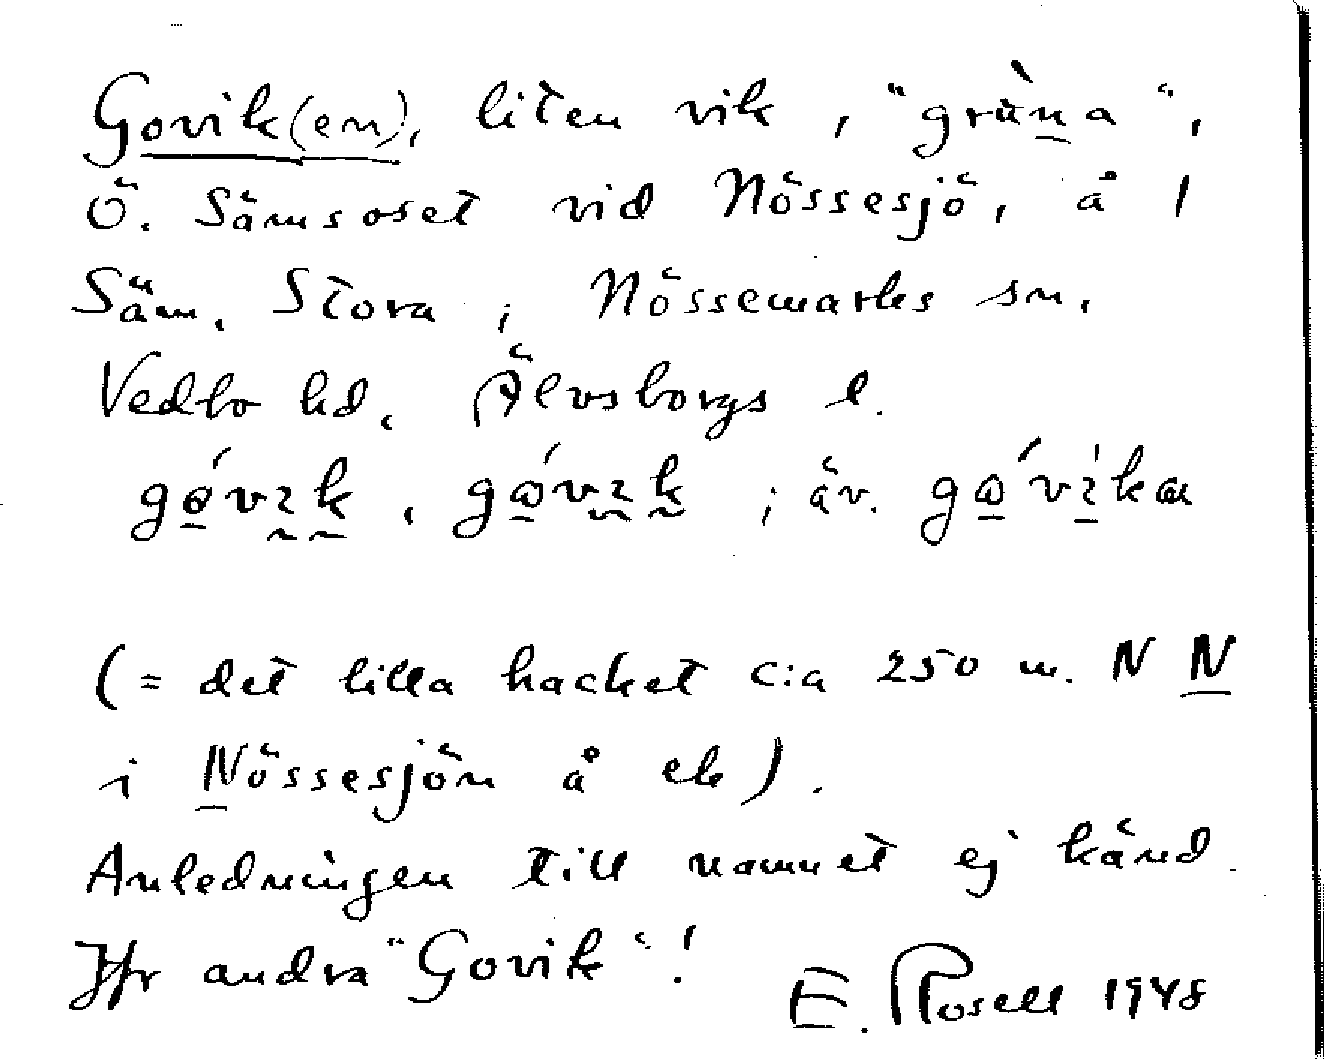 Govik(en), liten vik, "gràna",
Ö. Sämsoset vid Nössesjö, å 1
Säm, Stora, Nössemarks sn,
Vedbo hd, Älvsborgs l.
; äv.
(= det lilla hacket c:a 250 m. N N
i Nössesjön å ek).
Anledningen till namnet ej känd.
Jfr andra "Govik"!
E. Rosell 1948